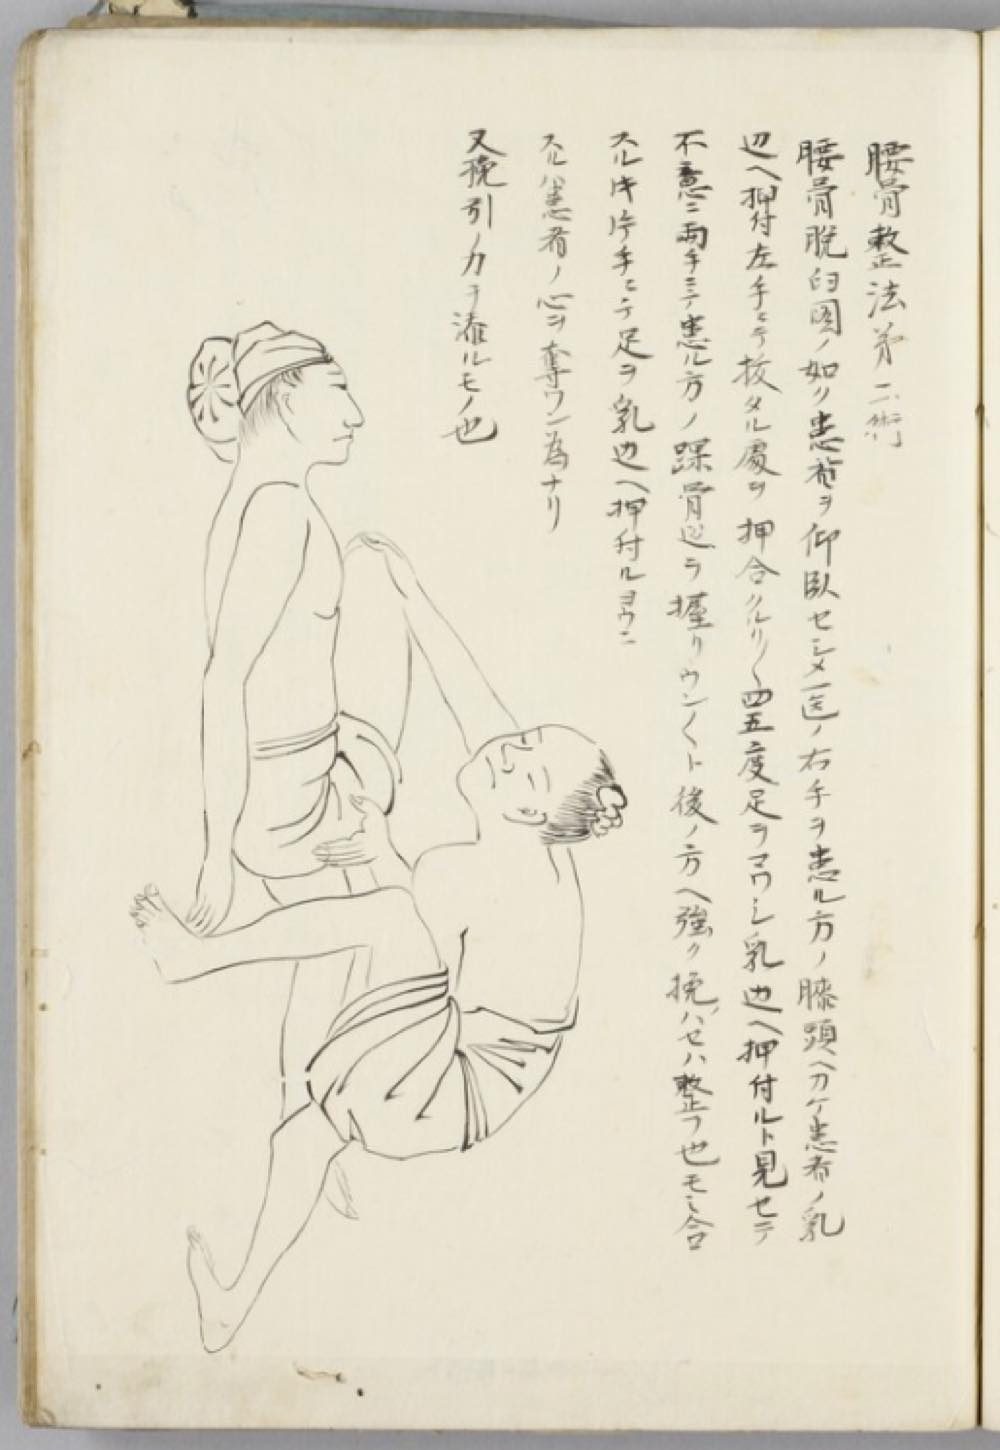 腰骨整法第二術
腰骨脱臼図ノ如リ患者ヲ仰臥セシメ医ノ右手ヲ患ル方ノ膝頭ヘカケ患者ノ乳
辺ヘ押付左手ニテ抜タル處ヲ押合クルリ〱四五度足ヲマワシ乳辺ヘ押付ルト見セテ
不意ニ両手ニテ患ル方ノ踝骨辺ヲ握リウン〱ト後ノ方ヘ強ク挽ハセハ整フ也モミ合
スルキ片手ニテ足ヲ乳辺ヘ押付ルヨウニ
スルハ患者ノ心ヲ奪ワン為ナリ
又挽引ノ力ヲ添ルモノ也